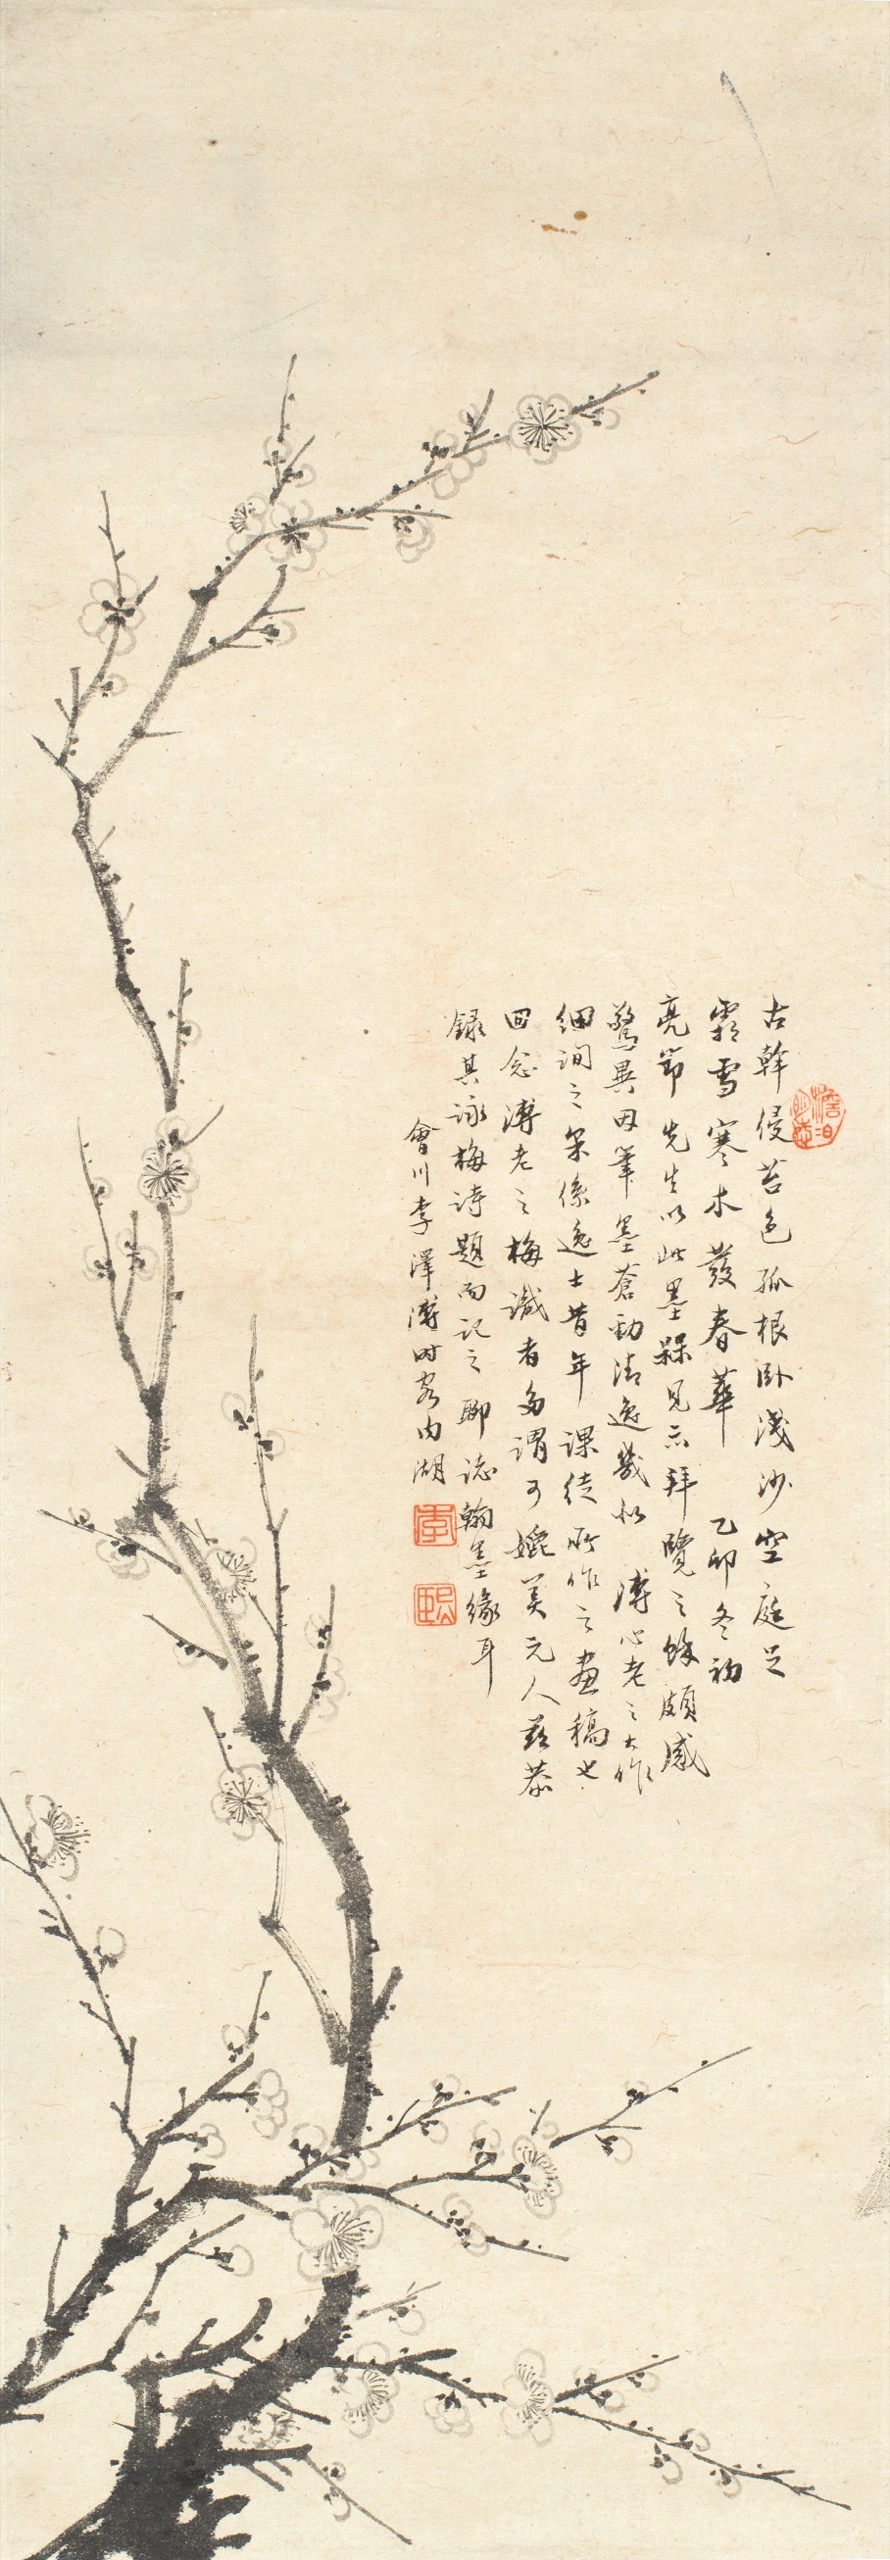 古幹侵苔色孤根卧淺沙空庭足
霜雪寒木發春華 乙卯冬初
亮節先生以此墨某見示拜覽之餘頗感
驚異因筆墨蒼勁清逸幾似 溥心老之大作
細詢之果係逸士昔年課徒所作之畫稿也
回念溥老之梅識者多謂可媲美元人茲恭
錄其詠梅詩題而記之聊誌翰墨緣耳
會川李澤溥時客內湖